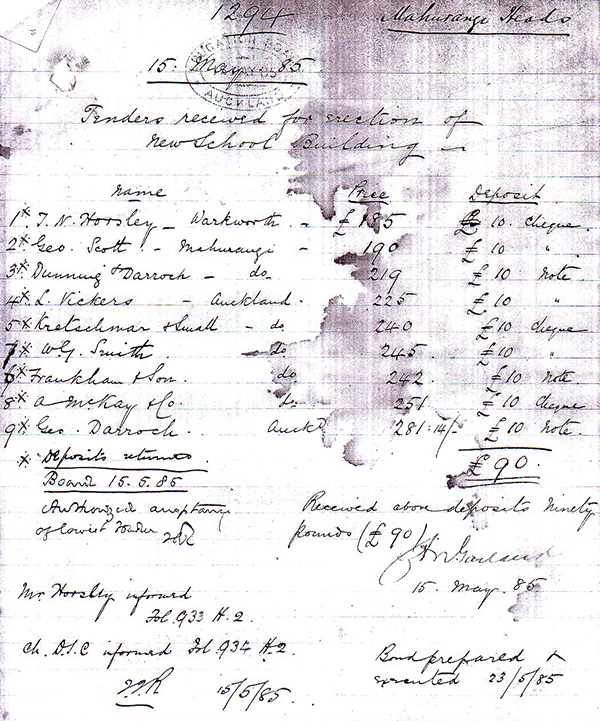 1294 Mahurangi Heads
AUCKLAND
15. May. 85
Tenders received for erection of
New School Building —
Name Price Deposit
1 x T. N. Horsley — Warkworth. — £185 £ 10 cheque.
2 x Geo. Scott. — Mahurangi — 190 £ 10 " .
3 x Dunning & Darroch — do 219 £ 10 Note
4 x L. Vickers — Auckland. 225 £ 10 "
5 x Kretschmar & Small — do. 240 £ 10 cheque
7 x W.G. Smith. do. 245. £ 10 "
6 x Frankham & Son. do 242. £ 10 Note.
8 x A McKay & Co. do. 251 £ 10 cheque
9 x Geo. Darroch. Auckd. 281.14/- £ 10 Note.
x Deposits returned. £90.
Board 15.5.85
Authorized acceptance
of lowest Tender
Received above deposits Ninety
pounds (£90)
15. May. 85.
Mr Horsley informed
Fol. 933 H.2.
Ch. D.S.C informed Fol 934 H.2.
15/5/85.
Bond prepared &
executed 23/5/85